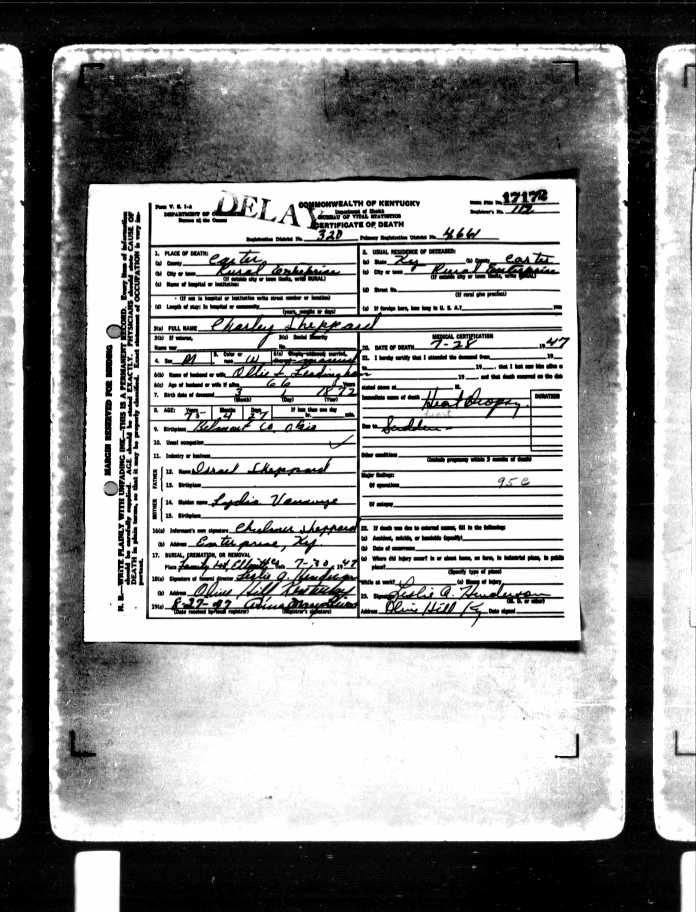 Form V. S. 1-A
DELAY
COMMONWEALTH OF KENTUCKY
17172
DEPARTMENT OF
Department of Health
Bureau of the Census
BUREAU OF VITAL STATISTICS
Registrar's No. 112
CERTIFICATE OF DEATH
Registration District No. 320 Primary Registration District No. 4661
1. PLACE OF DEATH:
(a) County Carter
(b) City or town Rural Enterprise
(If outside city or town limits, write RURAL)
(c) Name of hospital or institution:
(If not in hospital or institution write street number or location)
(d) Length of stay: In hospital or community
(years, months or days)
2. USUAL RESIDENCE OF DECEASED:
(a) State Ky (b) County Carter
(c) City or town Rural Enterprise
(If outside city or town limits, write RURAL)
(d) Street No.
(If rural give precinct)
(e) If foreign born, how long in U. S. A.? yrs
3(a) FULL NAME Charley Sheppard
3(b) If veteran,
Name war
3(c) Social Security
No.
4. Sex M
5. Color or
race W
6(a) Single, widowed, married,
divorced married
6(b) Name of husband or wife Ollie L.
6(c) Age of husband or wife if alive 66 Years
7. Birth date of deceased 3 1 1872
(Month) (Day) (Year)
8. AGE: Years Months Days If less than one day
75 4 27 hr. min.
9. Birthplace Belmont Co. Ohio
10. Usual occupation
11. Industry or business
FATHER
12. Name Israel Sheppard
13. Birthplace
MOTHER
14. Maiden name Lydia
15. Birthplace
16(a) Informant's own signature Sheppard
(b) Address Enterprise, Ky.
17. BURIAL, CREMATION, OR REMOVAL
Place Family Lot, Elliott Co. Date 7-30, 1947
18(a) Signature of funeral director Leslie A. Henderson
(b) Address Olive Hill Kentucky
19(a) 8-27-47
(Date received by local registrar) (Registrar's signature)
MEDICAL CERTIFICATION
20. DATE OF DEATH 7-28 1947
21. I hereby certify that I attended the deceased from 19
19 , that I last saw him alive on
19 and that death occurred on the date
stated above at M.
Immediate cause of death Heart Dropsy
DURATION
Due to Sudden
Other conditions
(Include pregnancy within 3 months of death)
Major findings:
Of operations 95c
Of autopsy
22. If death was due to external causes, fill in the following:
(a) Accident, suicide, or homicide (specify)
(b) Date of occurrence
(c) Where did injury occur? in or about home, on farm, in industrial place, in public
place?
(Specify type of place)
While at work? (e) Means of injury
23. Signature Leslie A. Henderson
(M. D. or other)
Address Olive Hill Ky Date signed
MARGIN RESERVED FOR BINDING
N. B.—WRITE PLAINLY WITH UNFADING INK—THIS IS A PERMANENT RECORD. Every item of information
should be carefully supplied. AGE should be stated EXACTLY. PHYSICIANS should state CAUSE OF
DEATH in plain terms, so that it may be properly classified. Exact statement of OCCUPATION is very im-
portant.